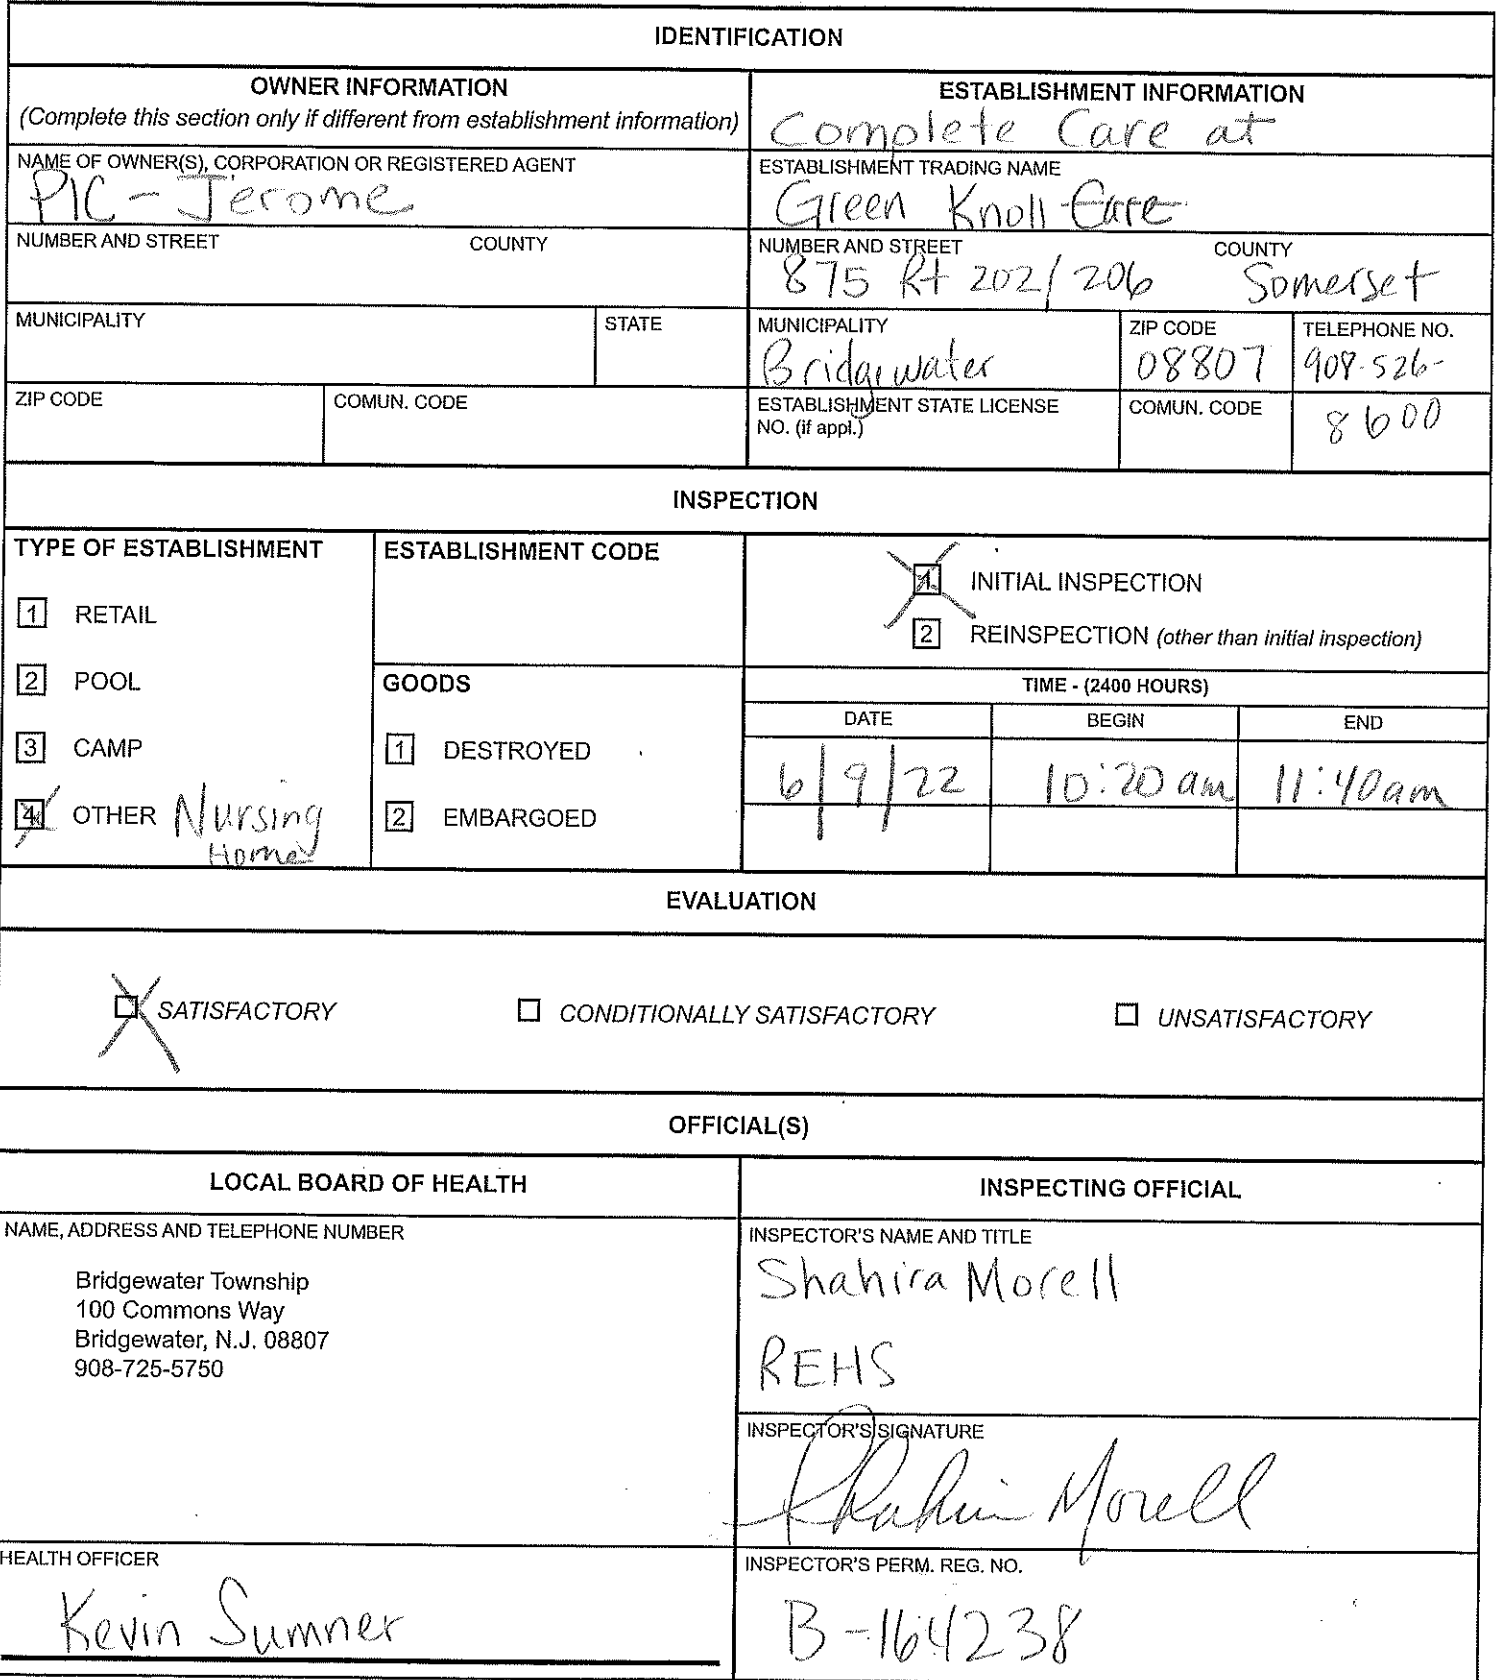 IDENTIFICATION
OWNER INFORMATION
(Complete this section only if different from establishment information)
NAME OF OWNER(S), CORPORATION OR REGISTERED AGENT
PIC - Jerome
NUMBER AND STREET COUNTY
MUNICIPALITY STATE
ZIP CODE COMUN. CODE
ESTABLISHMENT INFORMATION
Complete Care at
ESTABLISHMENT TRADING NAME
Green Knoll Care
NUMBER AND STREET COUNTY
875 Rt 202/206 Somerset
MUNICIPALITY ZIP CODE TELEPHONE NO.
Bridgewater 08807 908-526-
ESTABLISHMENT STATE LICENSE COMUN. CODE 8600
NO. (if appl.)
INSPECTION
TYPE OF ESTABLISHMENT
1 RETAIL
2 POOL
3 CAMP
4 OTHER Nursing
Home
ESTABLISHMENT CODE
GOODS
1 DESTROYED
2 EMBARGOED
1 INITIAL INSPECTION
2 REINSPECTION (other than initial inspection)
TIME - (2400 HOURS)
DATE BEGIN END
6/9/22 10:20 am 11:40am
EVALUATION
SATISFACTORY CONDITIONALLY SATISFACTORY UNSATISFACTORY
OFFICIAL(S)
LOCAL BOARD OF HEALTH
NAME, ADDRESS AND TELEPHONE NUMBER
Bridgewater Township
100 Commons Way
Bridgewater, N.J. 08807
908-725-5750
HEALTH OFFICER
Kevin Sumner
INSPECTING OFFICIAL
INSPECTOR'S NAME AND TITLE
Shahira Morell
REHS
INSPECTOR'S SIGNATURE
Shahira Morell
INSPECTOR'S PERM. REG. NO.
B-164238